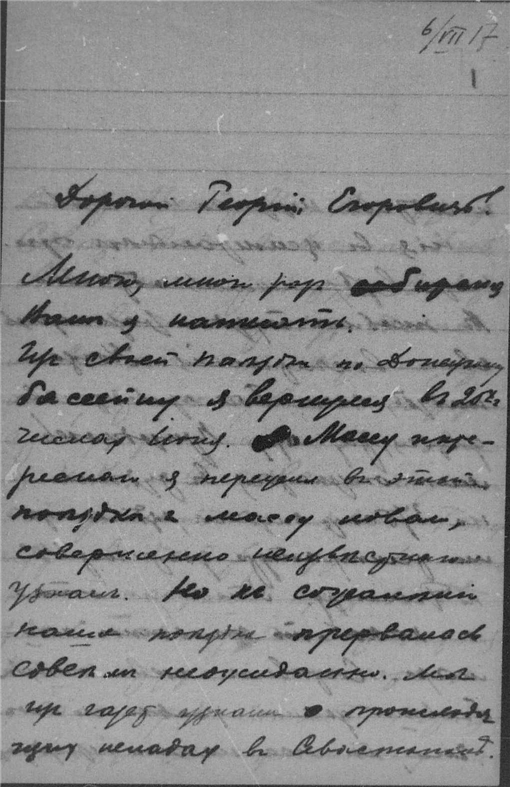 6/VII 17
1
Дорогой Георгій Егоровичъ!
Много, много раз собирался
Вам я написать.
Из своей поездки по Донецкому
бассейну я вернулся в 20х
числах Июня. Массу инте-
ресного я пережил в этой
поездке и массу нового,
совершенно неизвестного
узнал. Но к сожалению
наша поездка прервалась
совсем неожиданно. Мы
из газет узнали о происходя
щих неладах в Севастополе.